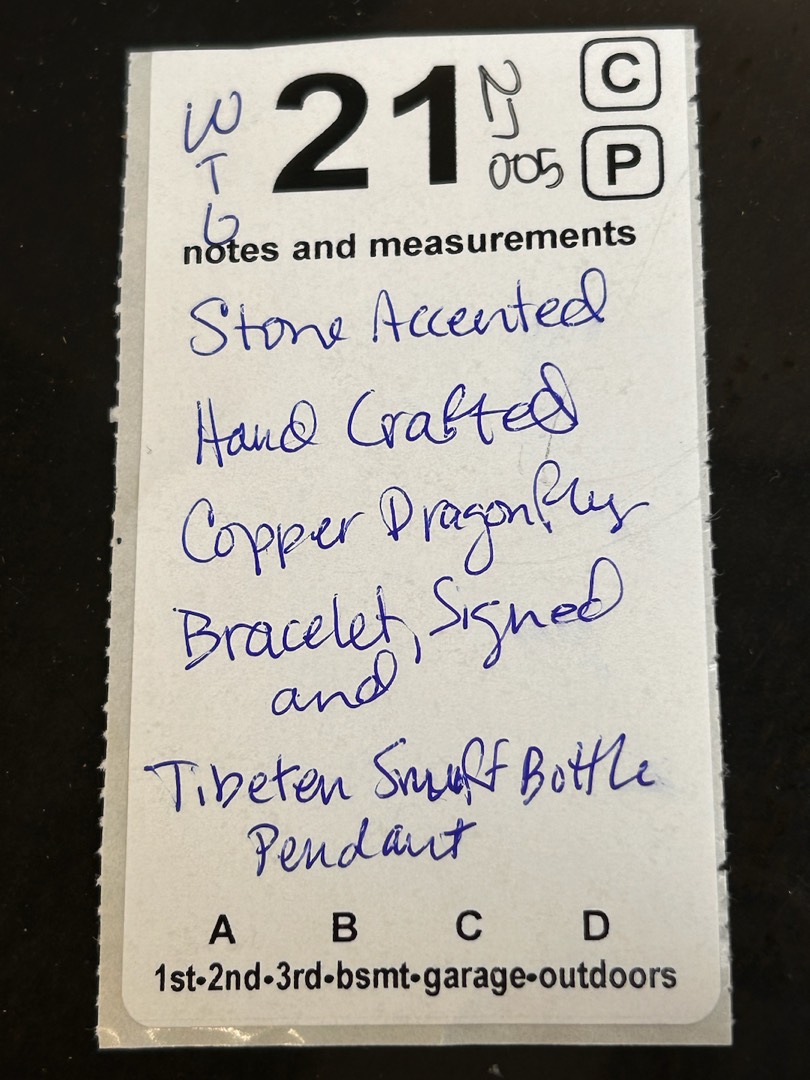 WTG 21 2J 005 C
P
notes and measurements
Stone Accented
Hand Crafted
Copper Dragonfly
Bracelet, Signed
and
Tibeten Snuff Bottle
Pendant
A B C D
1st•2nd•3rd•bsmt•garage•outdoors